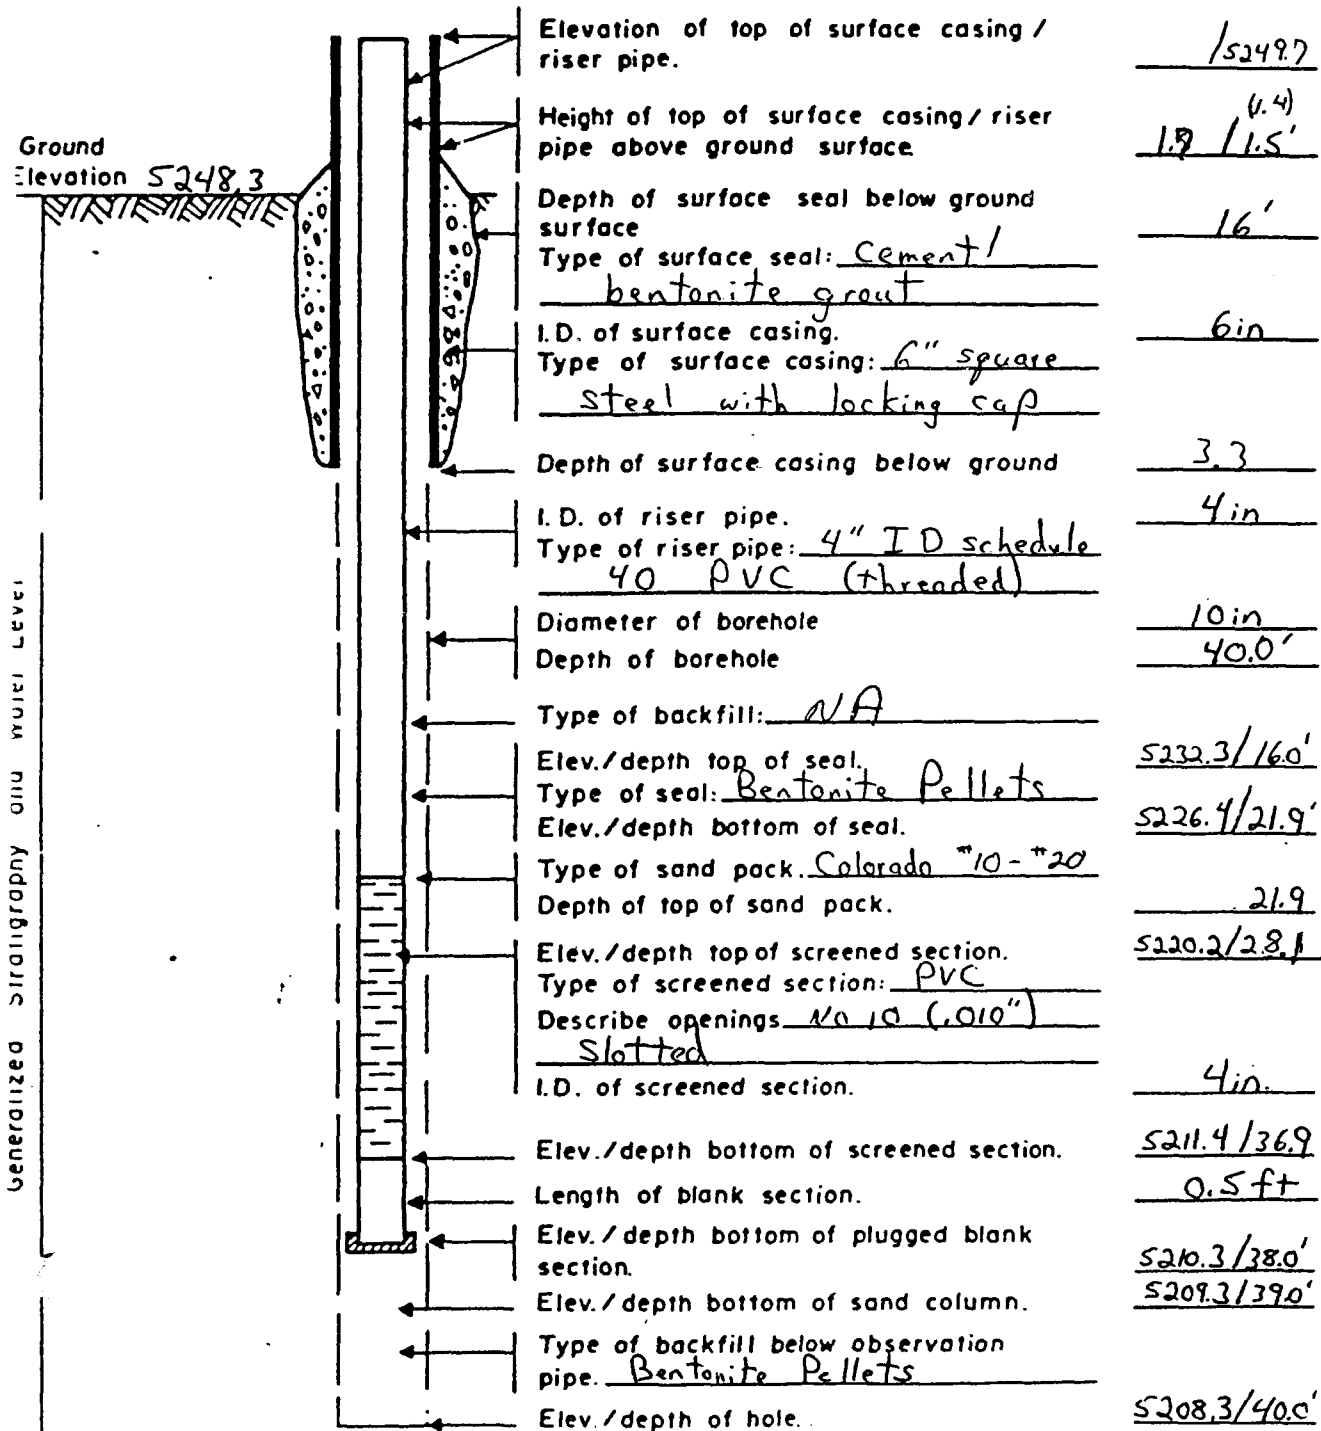 Elevation of top of surface casing /
riser pipe. /5249.7
(1.4)
Height of top of surface casing / riser
pipe above ground surface / 1.5'
Ground
Elevation 5248.3
Depth of surface seal below ground
surface 16'
Type of surface seal: Cement /
bentonite grout
I.D. of surface casing. 6in
Type of surface casing: 6" square
steel with locking cap
Depth of surface casing below ground 3.3
I.D. of riser pipe. 4in
Type of riser pipe: 4" ID schedule
40 PVC (threaded)
Diameter of borehole 10in
Depth of borehole 40.0'
Type of backfill: NA
Elev./depth top of seal. 5232.3/16.0'
Type of seal: Bentonite Pellets
Elev./depth bottom of seal. 5226.4/21.9'
Type of sand pack. Colorado #10-#20
Depth of top of sand pack. 21.9
Elev./depth top of screened section. 5220.2/28.1
Type of screened section: PVC
Describe openings No 10 (.010")
Slotted
I.D. of screened section. 4in.
Elev./depth bottom of screened section. 5211.4/36.9
Length of blank section. 0.5ft
Elev./depth bottom of plugged blank
section. 5210.3/38.0'
Elev./depth bottom of sand column. 5209.3/39.0'
Type of backfill below observation
pipe. Bentonite Pellets
Elev./depth of hole. 5208.3/40.0'
Generalized Stratigraphy and Water Level